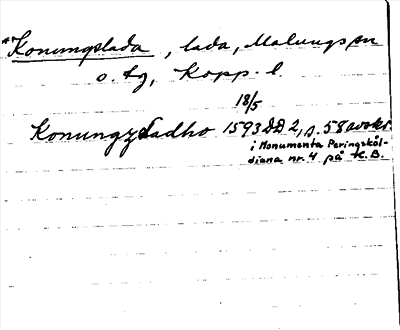 *Konungslada, lada, Malungs sn
o. tg, Kopp. l.
18/5
Konungzladho 1593 DD 2, s. 58 avskr.
i Monumenta Peringsköl-
diana nr. 4 på K. B.